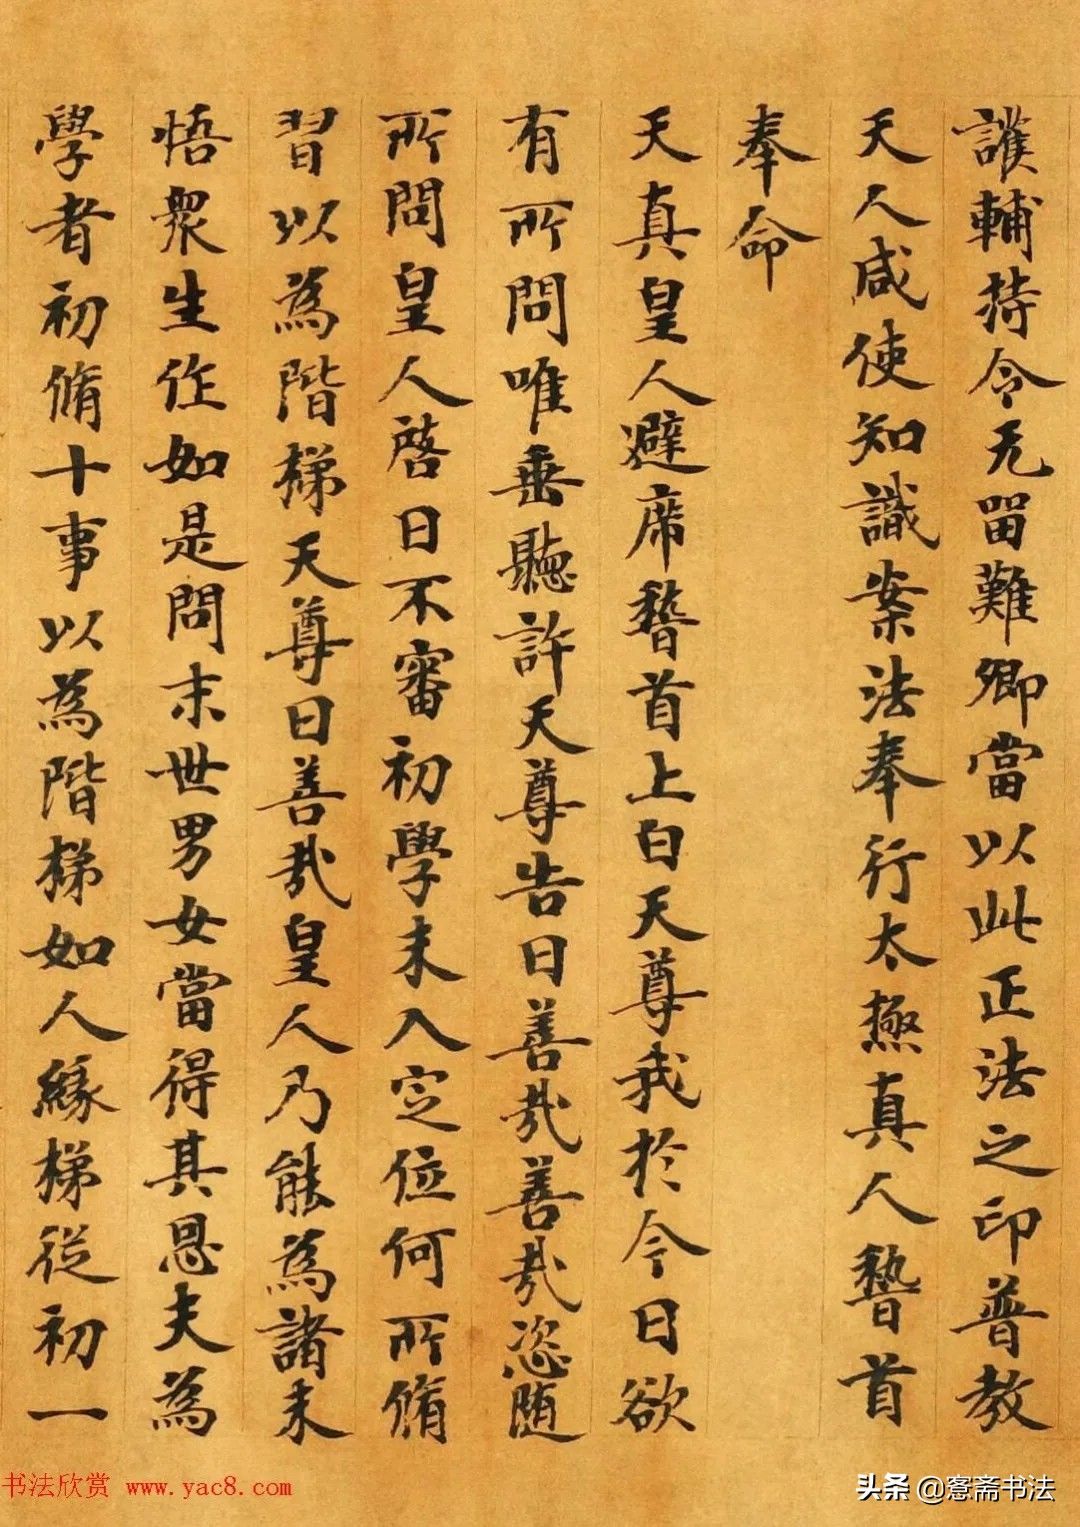 護輔持令无留難卿當以此正法之印普教
天人咸使知識案法奉行太極真人稽首
奉命
天真皇人避席稽首上白天尊我於今日欲
有所問唯垂聽許天尊告曰善哉善哉恣随
所問皇人啓曰不審初學未入定位何所脩
習以為階梯天尊曰善哉皇人乃能為諸未
悟衆生作如是問末世男女當得其恩夫為
學者初脩十事以為階梯如人緣梯從初一
书法欣赏 www.yac8.com
头条 @寋斋书法